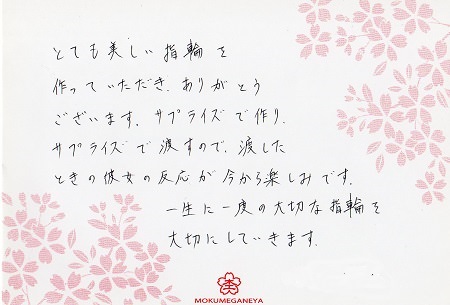 とても美しい指輪を
作っていただき、ありがとう
ございます。サプライズで作り、
サプライズで渡すので、渡した
ときの彼女の反応が今から楽しみです。
一生に一度の大切な指輪を
大切にしていきます。
MOKUMEGANEYA